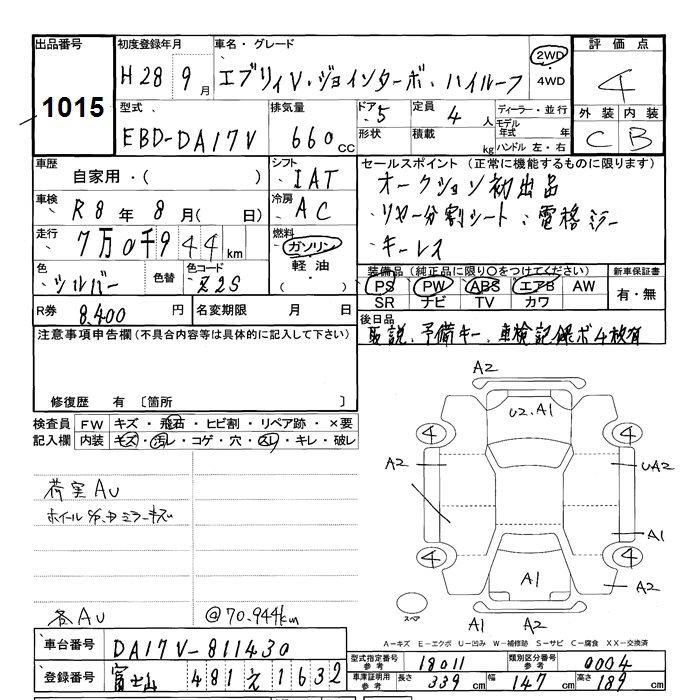 出品番号
1015
初度登録年月
H28 9月
車名・グレード
エブリイV・ジョインターボ・ハイルーフ
2WD
・
4WD
評価点
4
外装 内装
C B
型式
EBD-DA17V
排気量
660cc
ドア 5
形状
定員 4人
積載 kg
ディーラー・並行
モデル年式 年
ハンドル 左・右
車歴
自家用・( )
シフト
IAT
車検
R8年8月( 日)
冷房
AC
走行
7万0千944km
燃料
ガソリン
軽油
( )
色
シルバー
色替
色コード
Z2S
R券
8,400円
名変期限 月 日
セールスポイント(正常に機能するものに限ります)
オークション初出品
・リヤー分割シート、電格ミラー
・キーレス
装備品(純正品に限り○をつけてください)
PS PW ABS エアB AW
SR ナビ TV カワ
新車保証書
有・無
後日品
取説、予備キー、車検記録ボ4枚有
注意事項申告欄(不具合内容等は具体的に記入して下さい)
修復歴 有 〔箇所
検査員記入欄
FW キズ・飛石・ヒビ割・リペア跡・×要
内装 キズ・汚レ・コゲ・穴・スレ・キレ・破レ
荷室AU
各AU
@70,944km
A2
U2.A1
4 4
A2 UA2
A1
4 4
A1
A2
A1 A2
スペア
A-キズ E-エクボ U-凹み W-補修跡 S-サビ C-腐食 XX-交換済
車台番号
DA17V-811430
登録番号
富士山 481 え 1632
型式指定番号
参考
18011
類別区分番号
参考
0004
車庫証明用
参考
長さ 339cm
幅 147cm
高さ 189cm